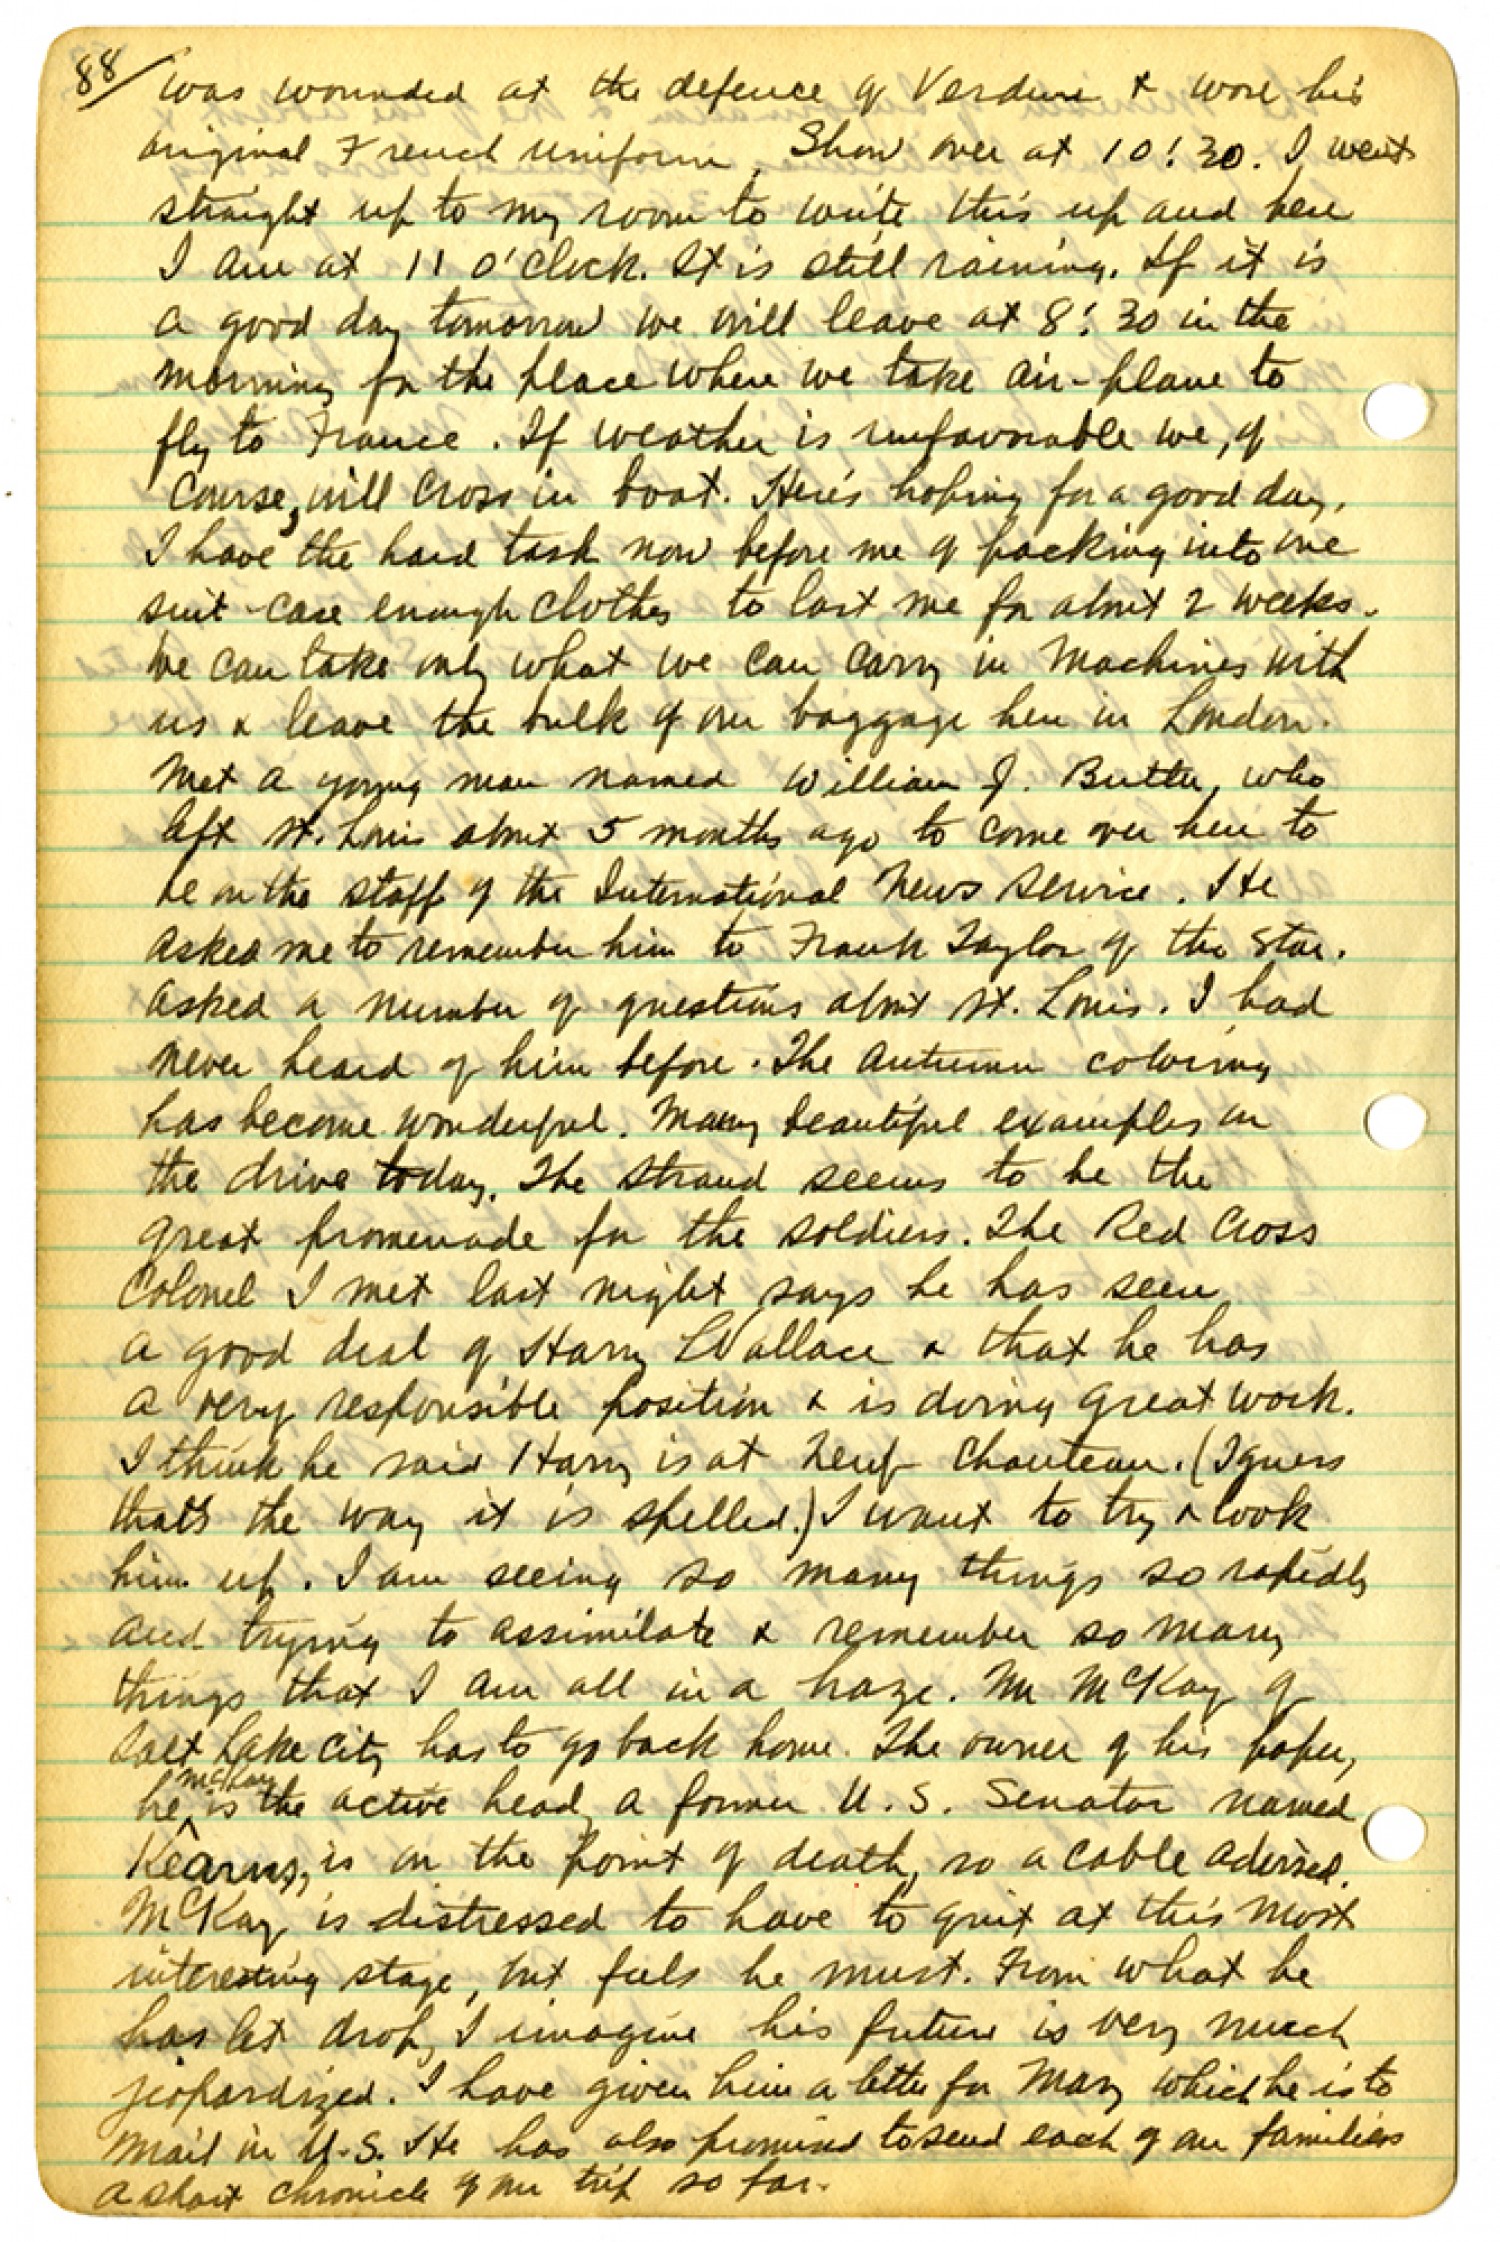 88/ was wounded at the defence of Verdun & wore his
original French uniform. Show over at 10:30. I went
straight up to my room to write this up and here
I am at 11 o'clock. It is still raining. If it is
a good day tomorrow we will leave at 8:30 in the
morning for the place where we take air-plane to
fly to France. If weather is unfavorable we, of
course, will cross in boat. Here's hoping for a good day.
I have the hard task now before me of packing into one
suit-case enough clothes to last me for about 2 weeks.
We can take only what we can carry in machines with
us & leave the bulk of our baggage here in London.
Met a young man named William J. Butler, who
left St. Louis about 5 months ago to come over here to
be on the staff of the International News Service. He
asked me to remember him to Frank Taylor of the Star.
Asked a number of questions about St. Louis. I had
never heard of him before. The autumn coloring
has become wonderful. Many beautiful examples on
the drive today. The Strand seems to be the
great promenade for the soldiers. The Red Cross
Colonel I met last night says he has seen
a good deal of Harry Wallace & that he has
a very responsible position & is doing great work.
I think he said Harry is at Neuf Chouteau. (I guess
that's the way it is spelled.) I want to try & look
him up. I am seeing so many things so rapidly
and trying to assimilate & remember so many
things that I am all in a haze. Mr McKay of
Salt Lake City has to go back home. The owner of his paper,
he McKay is the active head, a former U.S. Senator named
Kearns, is on the point of death, so a cable advised.
McKay is distressed to have to quit at this most
interesting stage, but feels he must. From what he
has let drop, I imagine his future is very much
jeopardized. I have given him a letter for Mary which he is to
mail in U.S. He has also promised to send each of our families
a short chronicle of our trip so far.